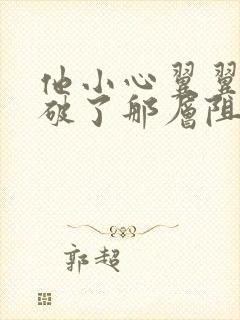 他小心翼翼
破了那层阻
郭超